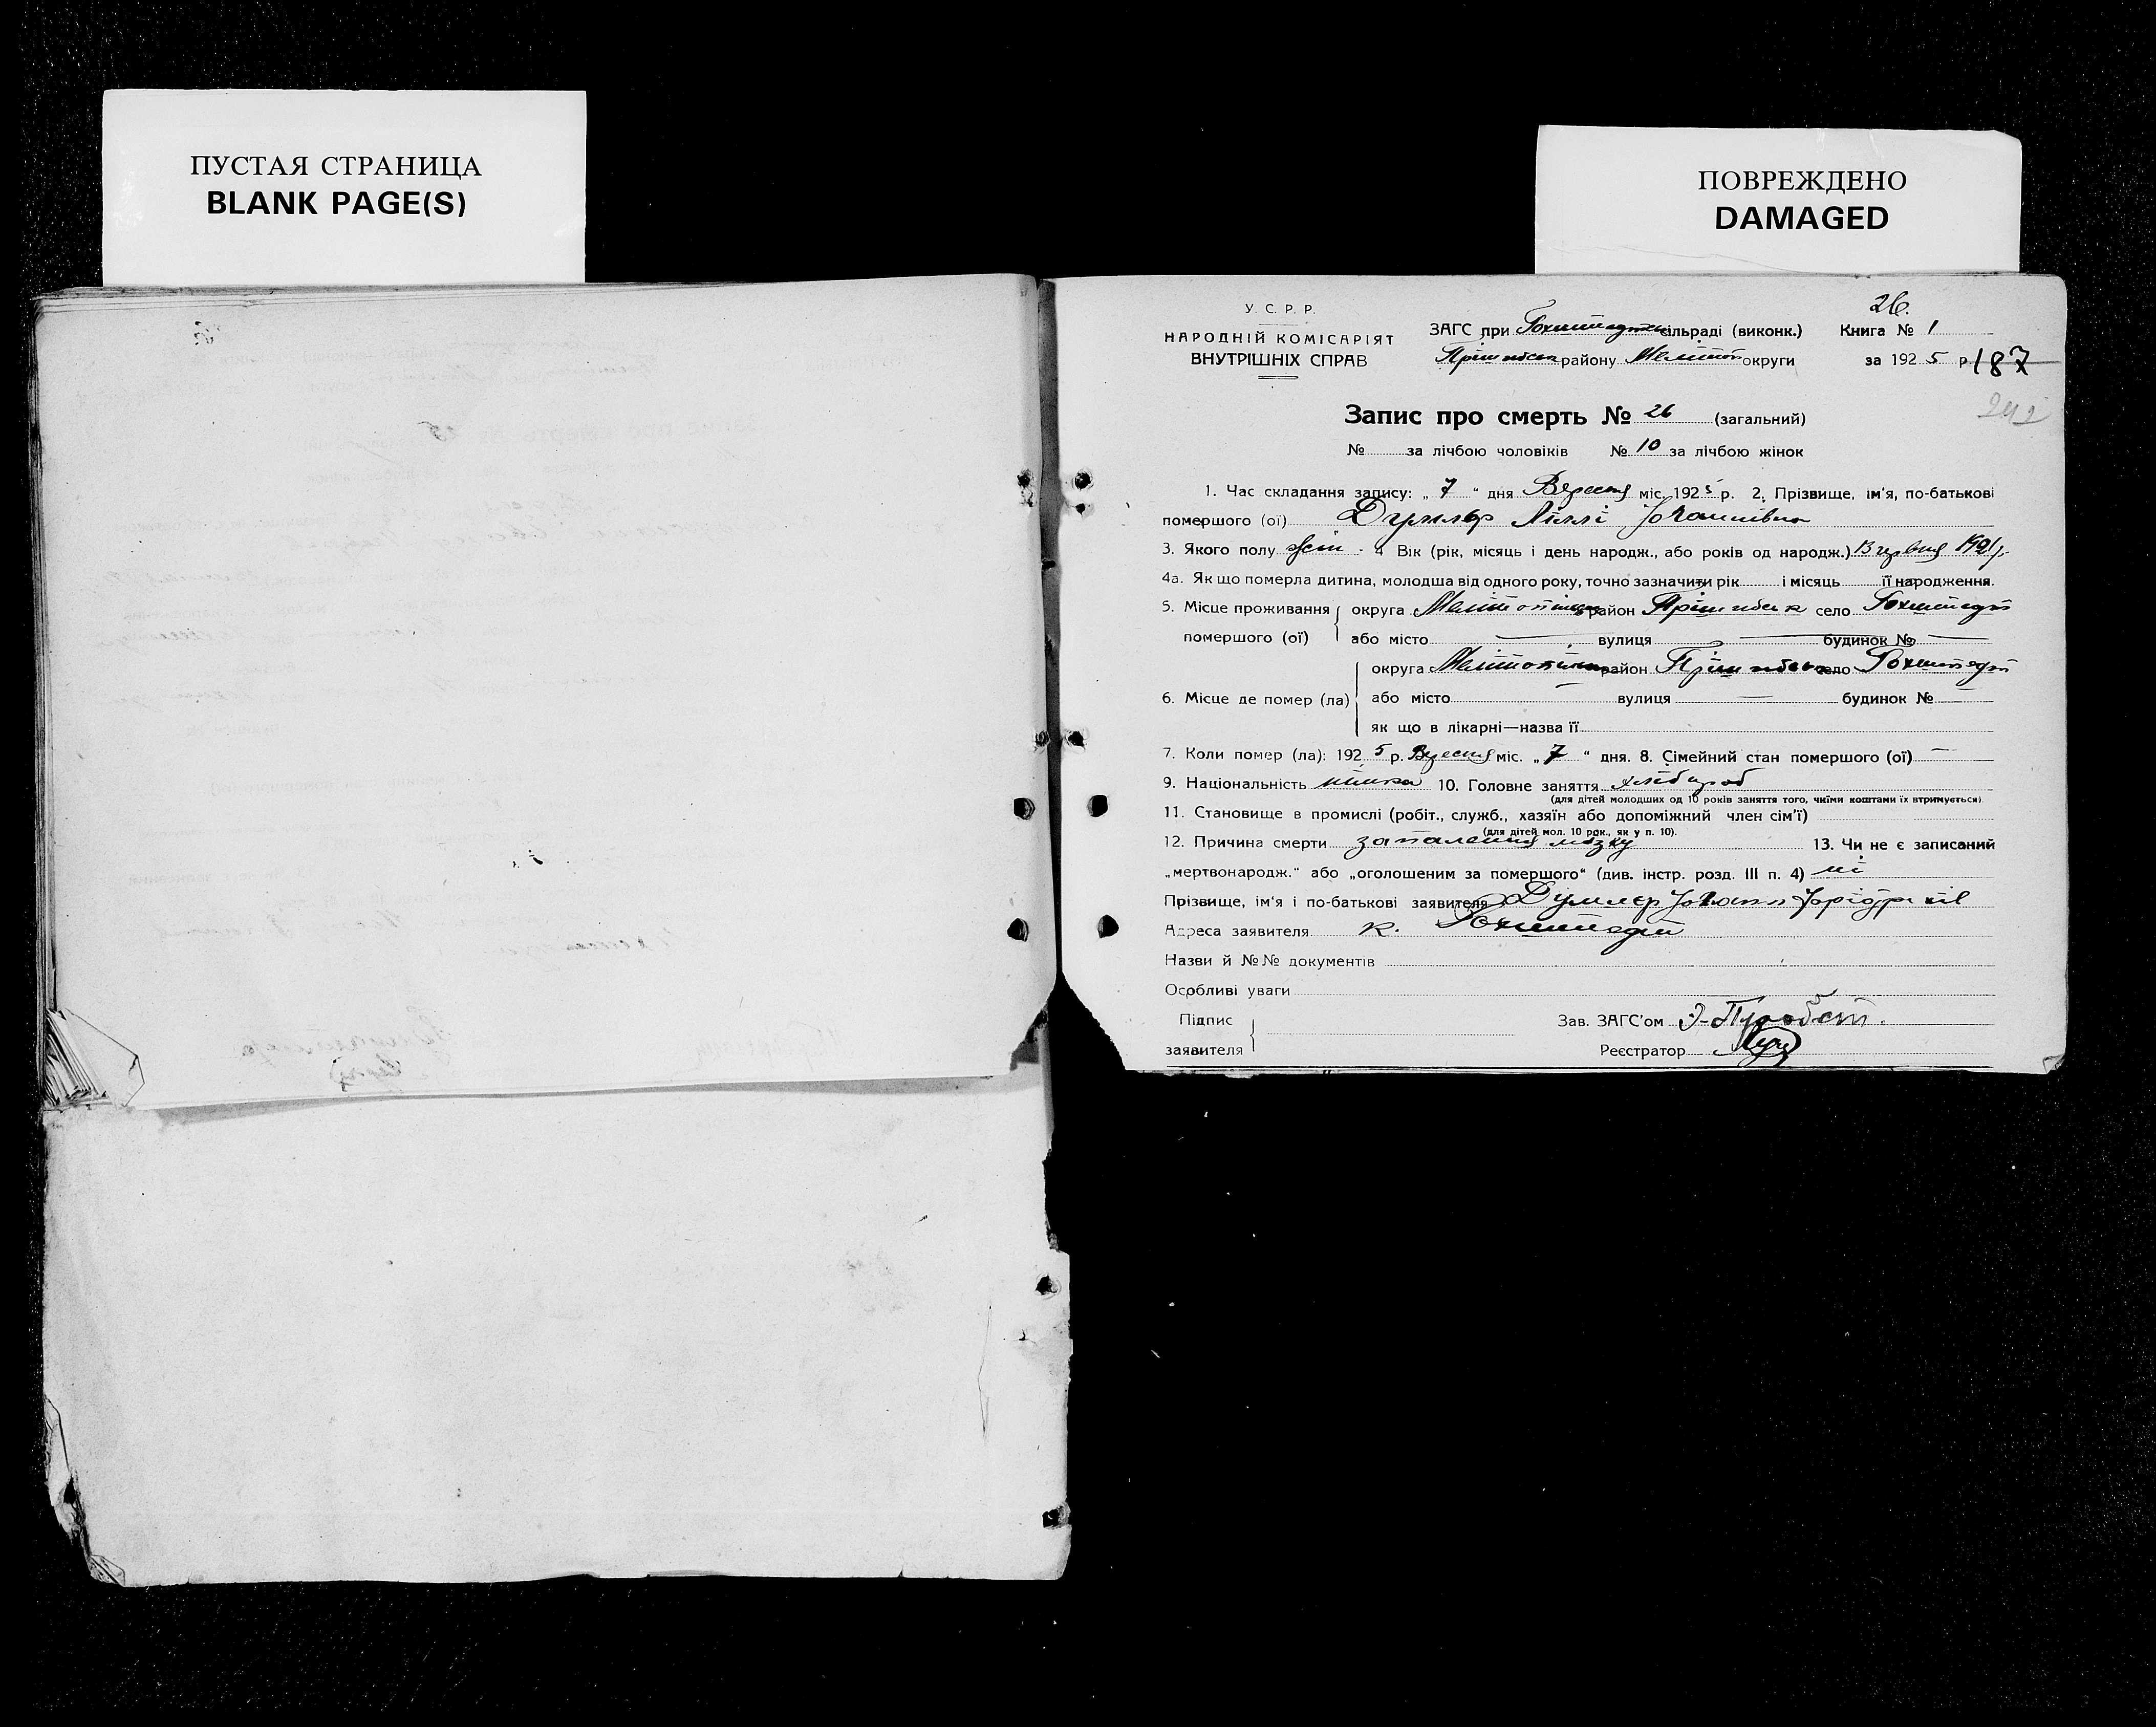 ПУСТАЯ СТРАНИЦА
BLANK PAGE(S)
ПОВРЕЖДЕНО
DAMAGED
У. С. Р. Р.
НАРОДНІЙ КОМІСАРІЯТ
ВНУТРІШНІХ СПРАВ
ЗАГС при Гохштадт сільраді (виконк.)
Прішибськ району Меліитоп округи
26.
Книга № 1
за 1925 р.
187
242
Запис про смерть № 26 (загальний)
№ за лічбою чоловіків № 10 за лічбою жінок
1. Час складання запису: „ 7 “ дня Вересня міс. 1925 р. 2. Прізвище, ім'я, по-батькові
помершого (ої) Думлєр Ліллі Йоганнівна
3. Якого полу жін. 4 Вік (рік, місяць і день народж., або років од народж.) червня
4а. Як що померла дитина, молодша від одного року, точно зазначити рік і місяць її народження.
5. Місце проживання округа Мелітопільськ район Прішибськ село Гохштадт
помершого (ої) або місто — вулиця — будинок № —
6. Місце де помер (ла) округа Мелітопільськ район Прішибськ село Гохштадт
або місто — вулиця — будинок № —
як що в лікарні—назва її
7. Коли помер (ла): 1925 р. Вересня міс. „ 7 “ дня. 8. Сімейний стан помершого (ої) —
9. Національність німка 10. Головне заняття хлібороб
(для дітей молодших од 10 років заняття того, чиїми коштами їх втримується)
11. Становище в промислі (робіт., служб., хазяїн або допоміжний член сім'ї)
(для дітей мол. 10 рок., як у п. 10).
12. Причина смерти запалення мозку 13. Чи не є записаний
„мертвонародж.“ або „оголошеним за помершого“ (див. інстр. розд. III п. 4) ні
Прізвище, ім'я і по-батькові заявителя Думлєр Йоганн
Адреса заявителя к. Гохштадт
Назви й №№ документів
Особливі уваги
Підпис
заявителя
Зав. ЗАГС'ом Пробст.
Реєстратор